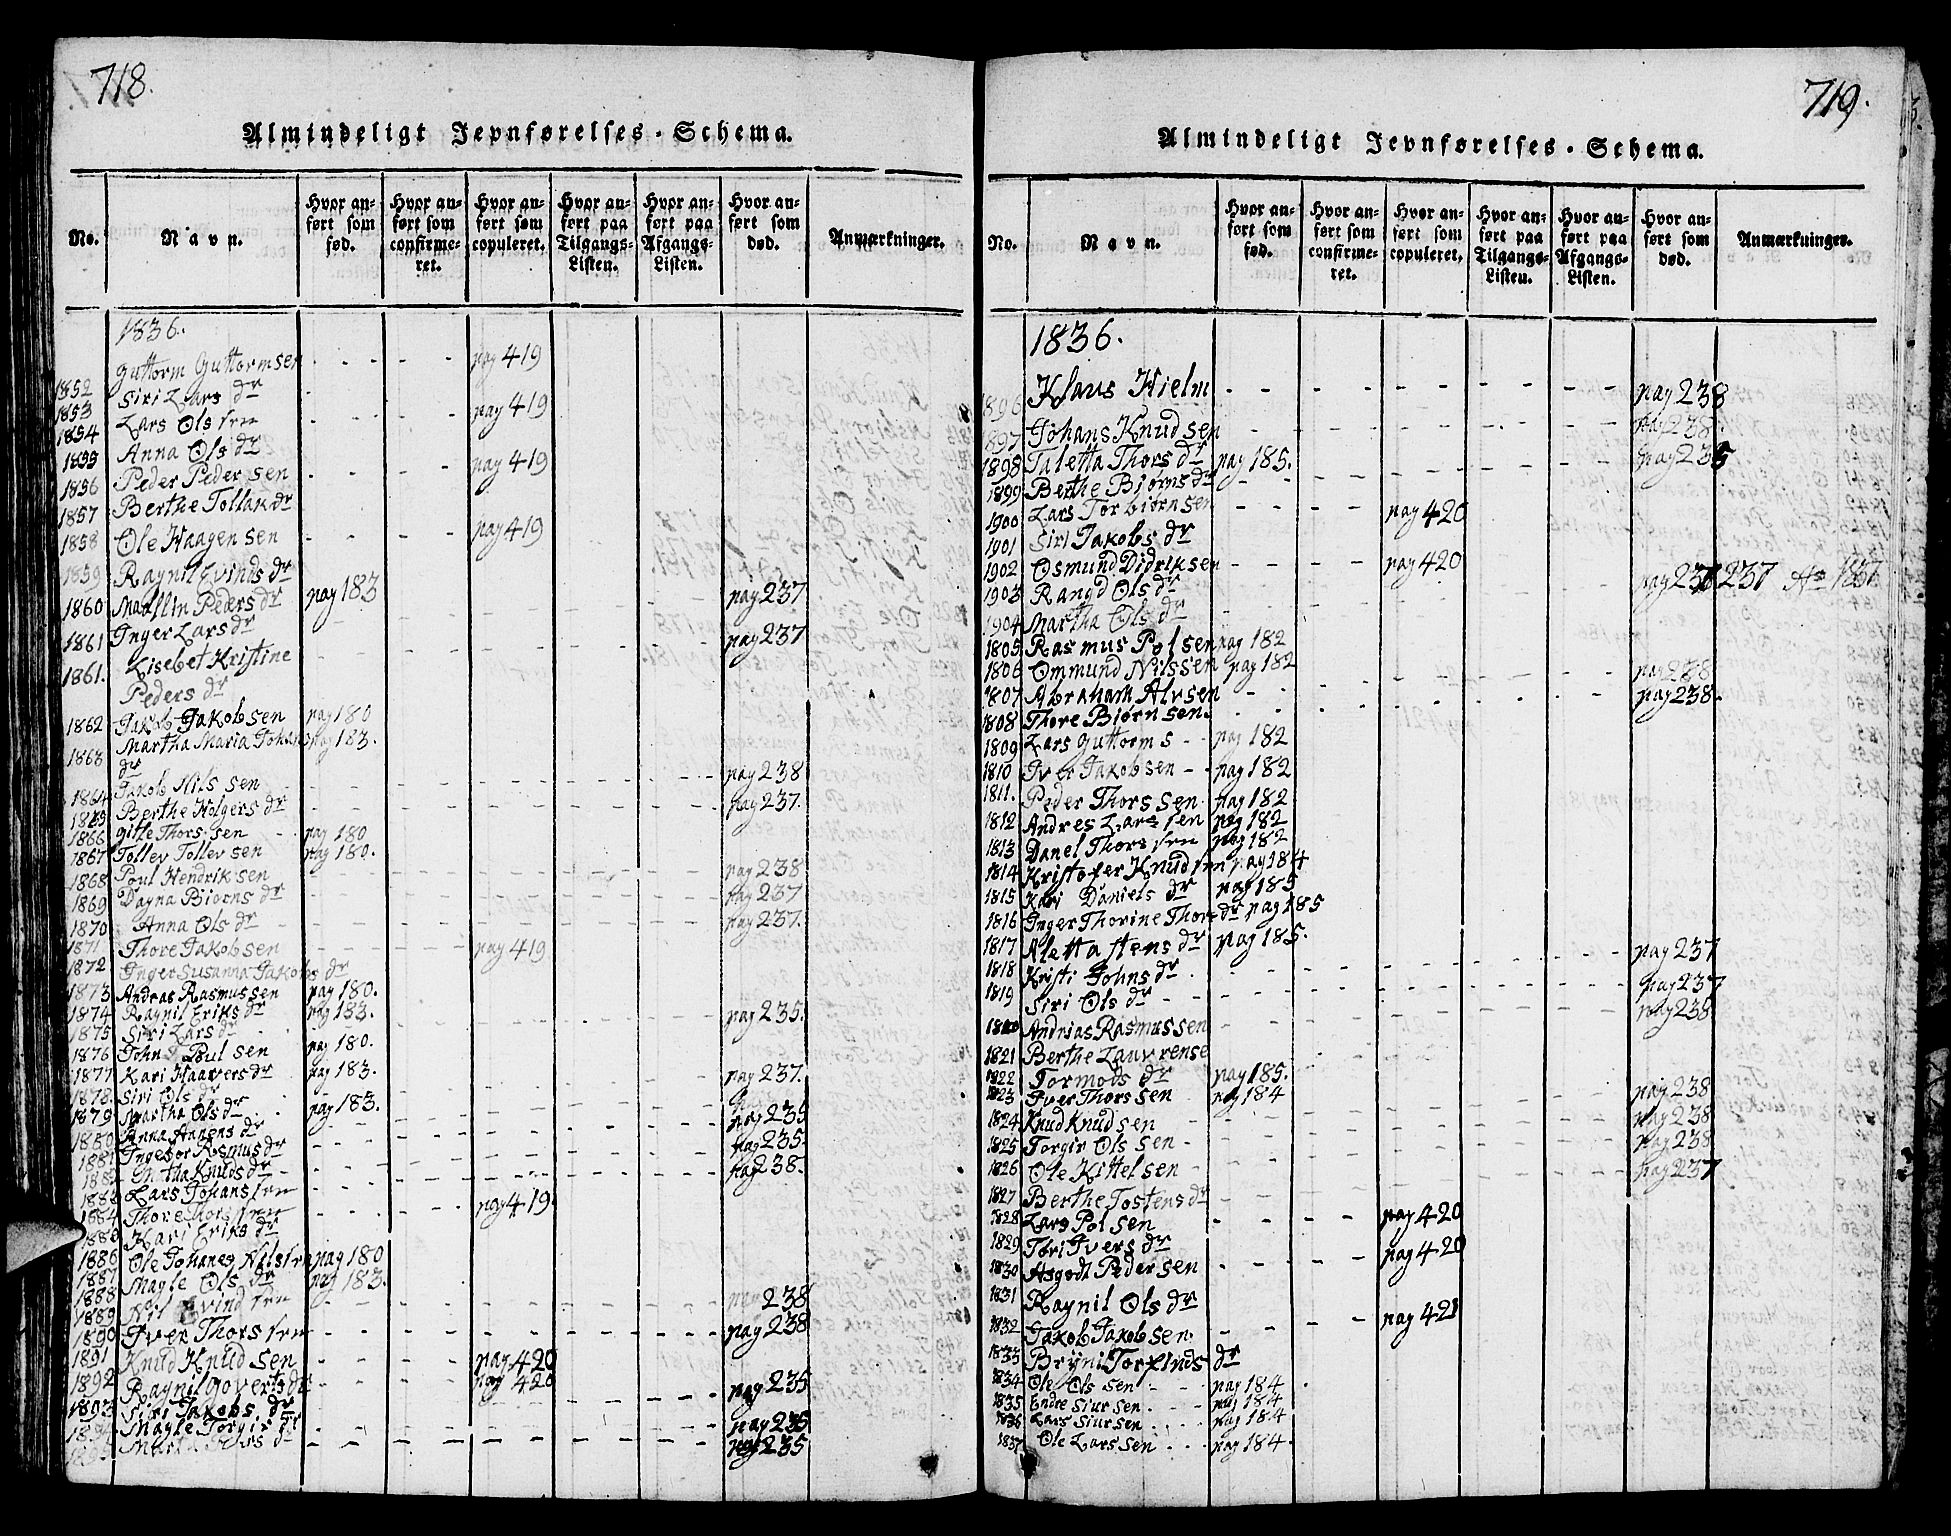 718.
Almindeligt Jevnførelses-Schema.
No. Navn. Hvor anført som fød. Hvor anført som confirmeret. Hvor anført som copuleret. Hvor anført paa Tilgangs-Listen. Hvor anført paa Afgangs-Listen. Hvor anført som død. Anmærkninger.
1836.
1852 Guttorm Guttormsen pag 419
1853 Siri Lars dr
1854 Lars Ols sen pag 419
1855 Anna Ols dr
1856 Peder Peder sen pag 419
1857 Berthe Tollak dr
1858 Ole Haagen sen pag 419
1859 Ragnil Evinds dr
1860 Mallin Peders dr pag 183
1861 Inger Lars dr pag 237
1861. Lisebet Kristine pag 237
Peders dr
1862 Jakob Jakobsen pag 180
1863 Martha Maria Johans pag 183.
dr
1864 Jakob Nils sen pag 238
1865 Berthe Holgers dr pag 237.
1866 Gitle Thors sen pag 180
1867 Tollev Tollev sen pag 180.
1868 Poul Hendrik sen pag 238
1869 Dagna Biørns dr pag 237
1870 Anna Ols dr pag 237.
1871 Thore Jakobsen pag 419
1872 Inger Susanna Jakobs dr
1873 Andras Rasmussen pag 180.
1874 Ragnil Eriks dr pag 183.
1875 Siri Lars dr pag 235.
1876 John Poul sen pag 180.
1877 Kari Haavers dr pag 183.
1878 Siri Ols dr pag 237.
1879 Martha Ols dr pag 183.
1880 Anna Aanens dr pag 235
1881 Ingebor Rasmus dr pag 235.
1882 Martha Knuds dr pag 238.
1883 Lars Johans sen
1884 Thore Thors sen pag 419.
1885 Kari Eriks dr
1886 Ole Johanes Nilssen pag 180
1887 Magle Ols dr pag 183.
1888 Nil Evind sen 238
1889 Iver Thors sen pag 238
1890 Knud Knudsen pag 420
1891 Ragnil Goverts dr pag 420
1892 Siri Jakobs dr pag 235
1893 Magle Torgis dr pag 235
Marta dr pag 235
719.
Almindeligt Jevnførelses-Schema.
No. Navn. Hvor anført som fød. Hvor anført som confirmeret. Hvor anført som copuleret. Hvor anført paa Tilgangs-Listen. Hvor anført paa Afgangs-Listen. Hvor anført som død. Anmærkninger.
1836.
1896 Klaus Hielm pag 238
1897 Johans Knudsen pag 238.
1898 Taletta Thors dr pag 185. pag 235
1899 Berthe Biørns dr
1900 Lars Torbiørnsen pag 420
1901 Siri Jakobs dr
1902 Osmund Didriksen pag 420
1903 Rangd Ols dr pag 237 237 Ao 1837
1904 Martha Ols dr
1805 Rasmus Polsen pag 182
1806 Ommund Nilssen pag 182
1807 Abraham Alvsen pag 238
1808 Thore Biørnsen. pag 238.
1809 Lars Guttorms pag 182
1810 Iver Jakobsen pag 182
1811. Peder Thorssen pag 182
1812 Andres Lars sen pag 182
1813 Danel Thors sen pag 182
1814 Kristofer Knudsen pag 184
1815 Kari Daniels dr pag 185
1816 Inger Thorine Thors dr pag 185
1817 Aletta Stens dr pag 185.
1818 Kristi Johns dr pag 237
1819 Siri Ols dr pag 237
1820 Andrias Rasmussen pag 238
1821 Berthe Lauvrense
1822 Tormods dr pag 185.
1823 Iver Thorssen pag 184
1824 Knud Knudsen pag 238
1825 Torgir Ols sen pag 238
1826 Ole Kittelsen pag 238
1827 Berthe Tostens dr pag 237
1828 Lars Polsen pag 420
1829 Tori Ivers dr
1830 Asgodt Pedersen pag 420
1831 Ragnil Ols dr
1832 Jakob Jakobsen. pag 421
1833 Brynil Torkinds dr
1834 Ole Ols sen pag 184
1835 Endre Siursen pag 184
1836 Lars Siursen pag 184
1837 Ole Larssen pag 184.